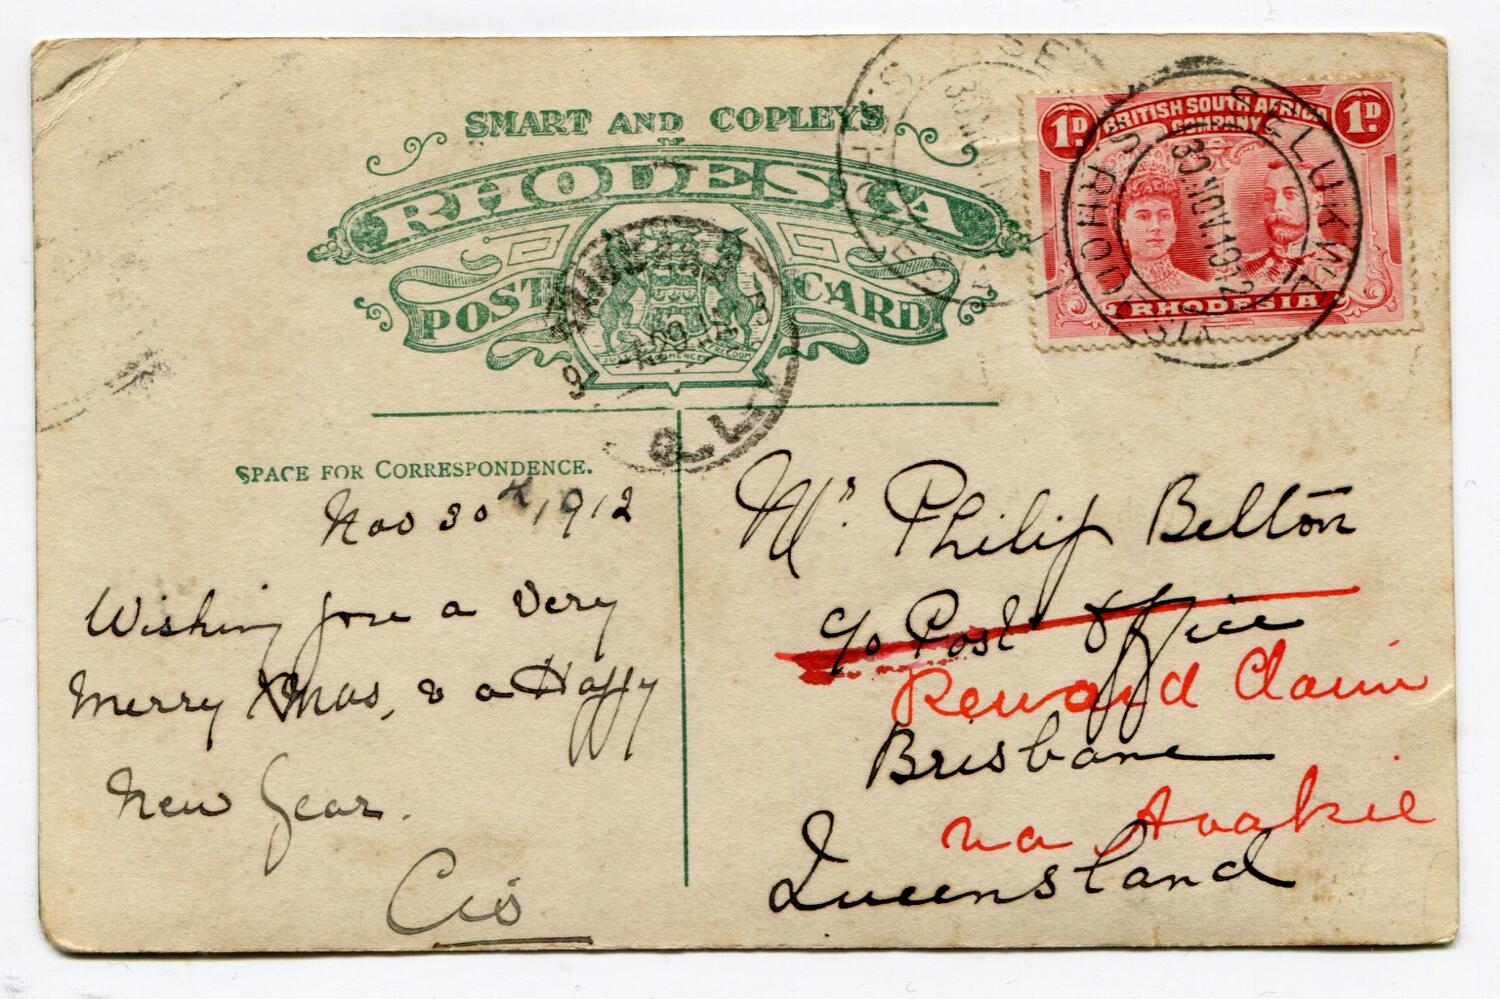 SMART AND COPLEY'S
RHODESIA
POST CARD
BRITISH SOUTH AFRICA
COMPANY
1D. 1D.
RHODESIA
SELUKWE
S. RHODESIA
30 NOV. 1912
SPACE FOR CORRESPONDENCE.
Nov 30th, 1912
Wishing you a Very
Merry Xmas, & a Happy
New Year.
Cis
Mr. Philip Belton
c/o Post Office
Reward Claim
Brisbane
via
Queensland
BRISBANE